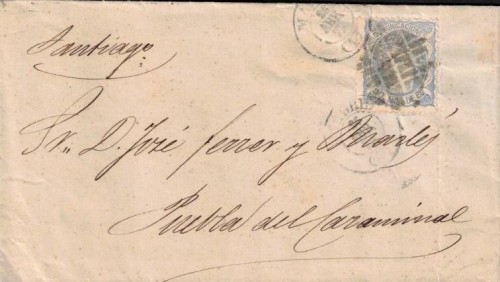 Santiago
Sr. D. José Ferrer y
Puebla del Caraminal